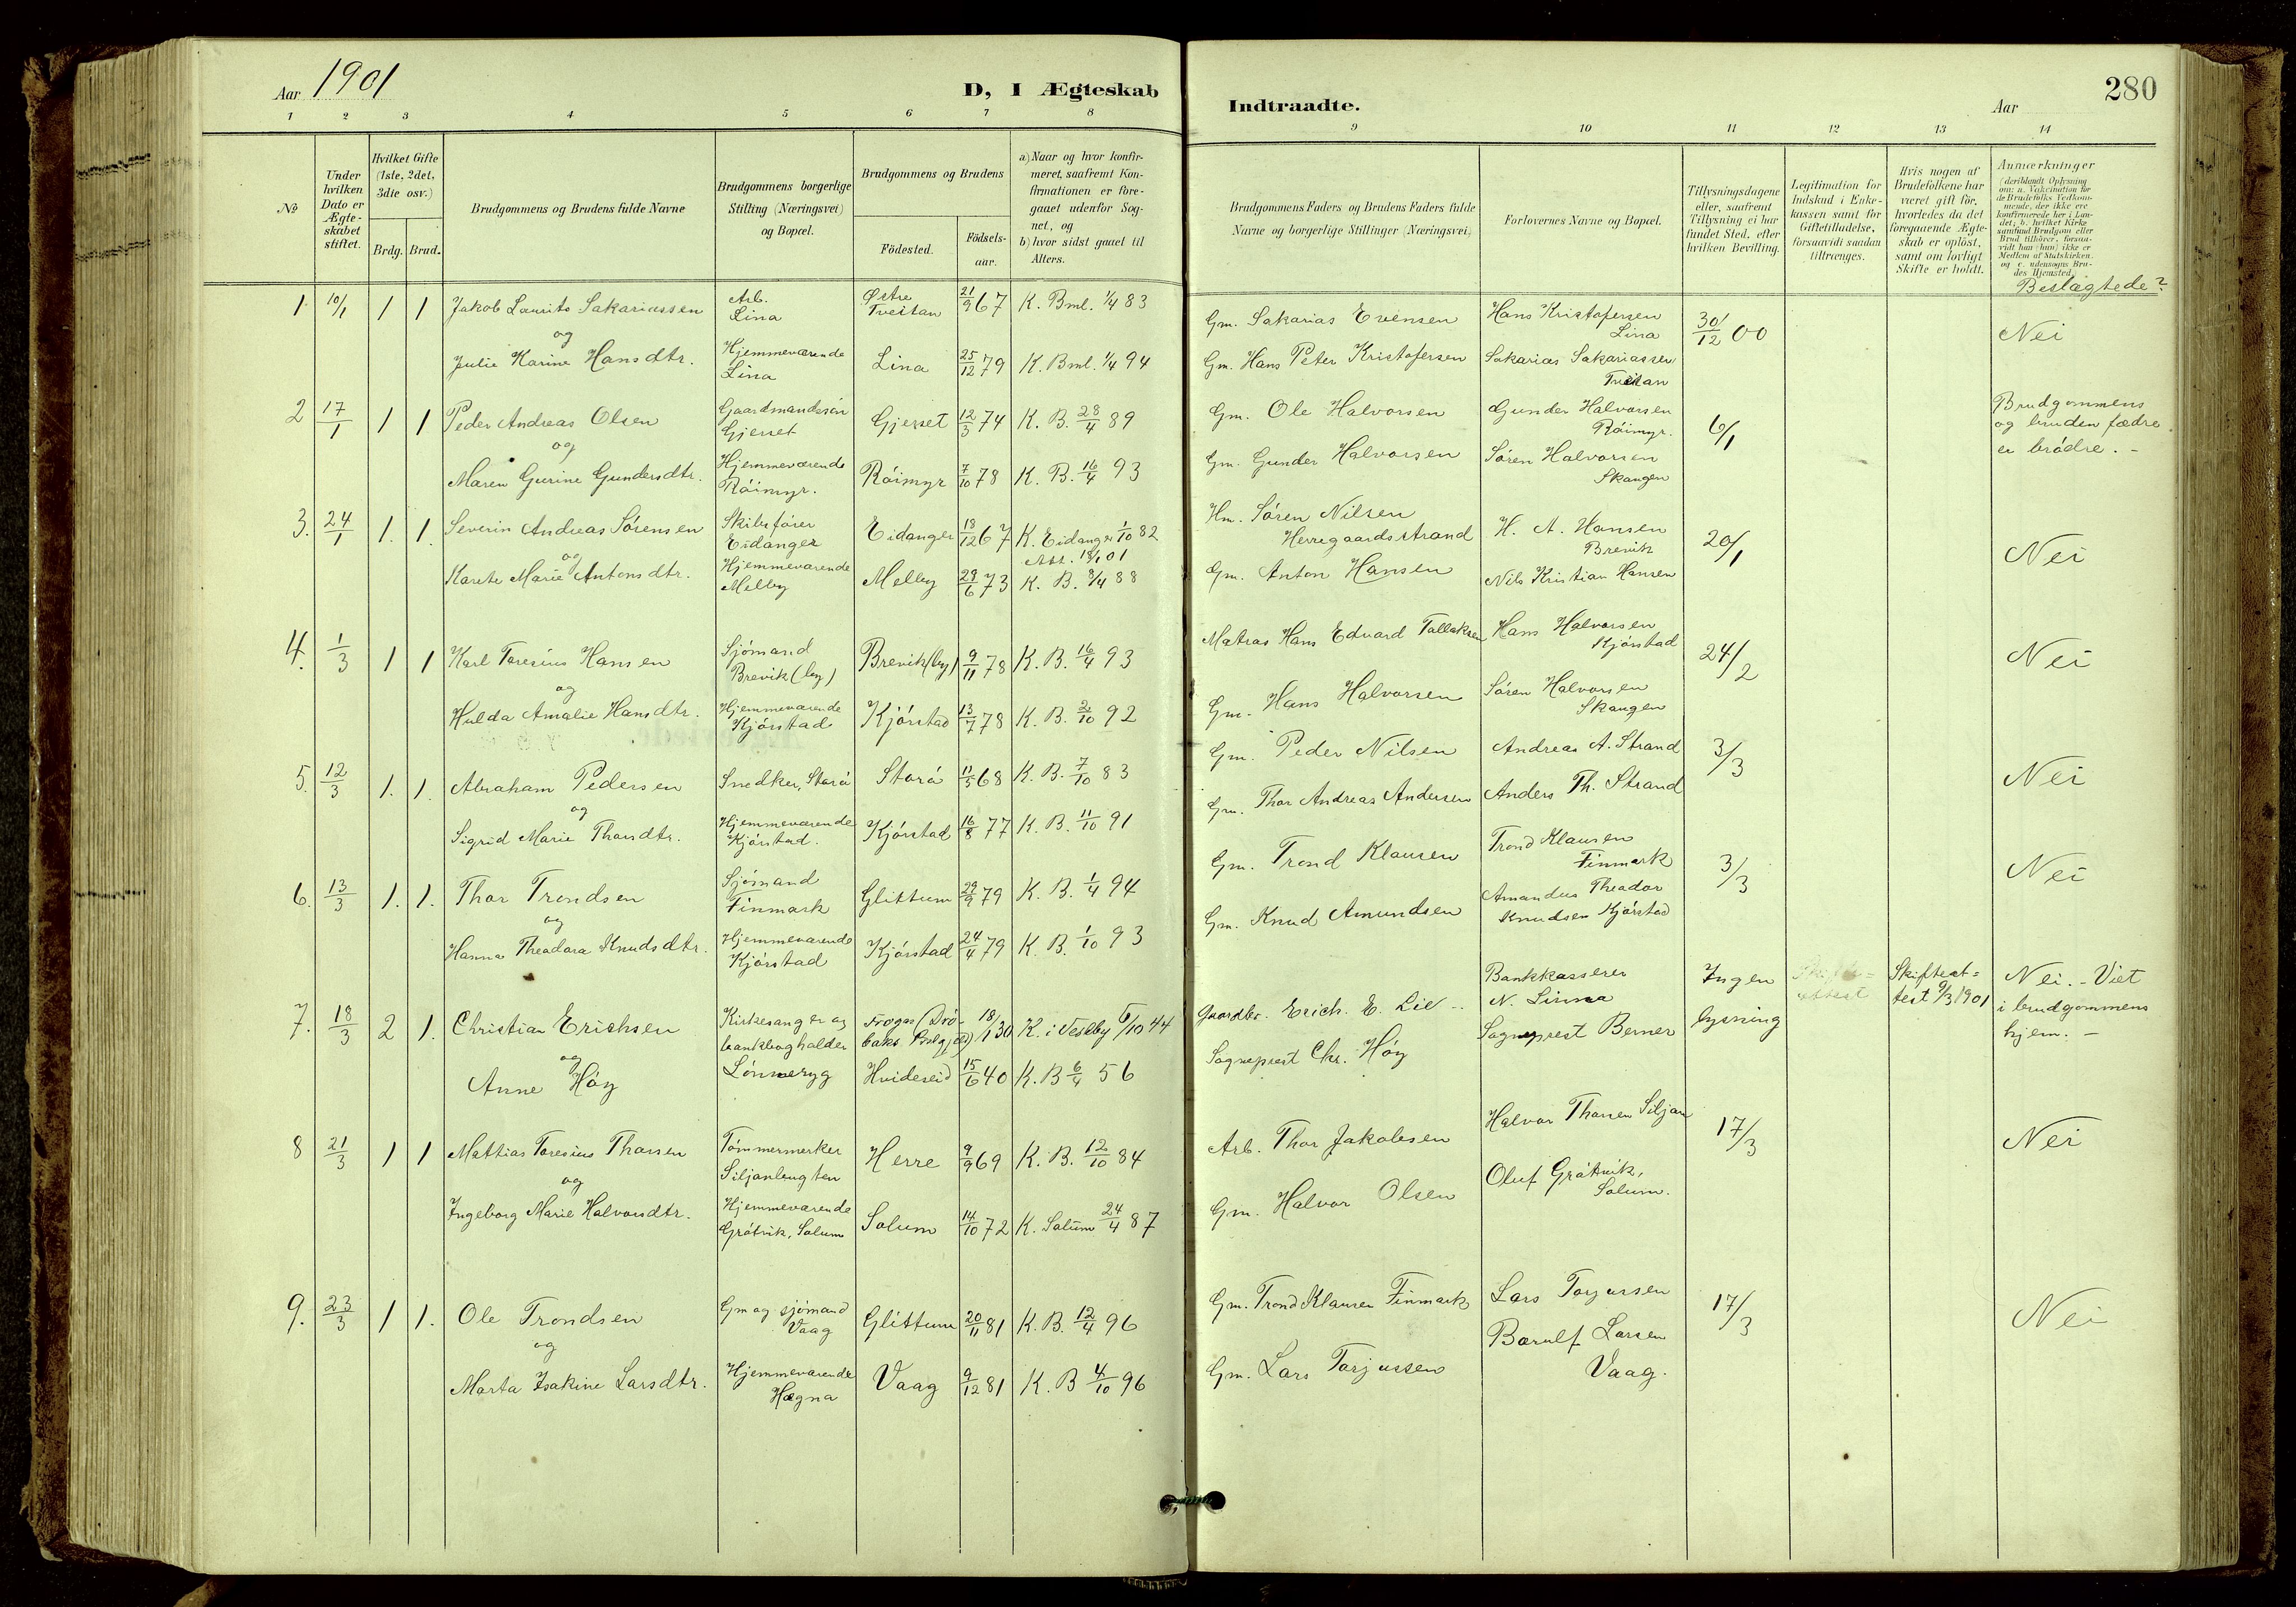 Aar 1901
D, I Ægteskab
Indtraadte.
Aar
280
1 2 3 4 5 6 7 8
9 10 11 12 13 14
№
Under hvilken Dato er Ægteskabet stiftet.
Hvilket Gifte (1ste, 2det, 3die osv.)
Brdg. Brud.
Brudgommens og Brudens fulde Navne
Brudgommens borgerlige Stilling (Næringsvei) og Bopæl.
Brudgommens og Brudens
Födested.
Födsels-aar.
a) Naar og hvor konfirmeret, saafremt Konfirmationen er foregaaet udenfor Sognet, og
b) hvor sidst gaaet til Alters.
Brudgommens Faders og Brudens Faders fulde Navne og borgerlige Stillinger (Næringsvei)
Forlovernes Navne og Bopæl.
Tillysningsdagene eller, saafremt Tillysning ei har fundet Sted, efter hvilken Bevilling.
Legitimation for Indskud i Enkekassen samt for Giftetilladelse, forsaavidt saadan tiltrænges.
Hvis nogen af Brudefolkene har været gift för, hvorledes da det foregaaende Ægteskab er oplöst, samt om lovligt Skifte er holdt.
Anmærkninger
(deriblandt Oplysning om: a. Vakcination for de Brudefolks Vedkommende, der ikke ere konfirmerede her i Landet; b. hvilket Kirkesamfund Brudgom eller Brud tilhörer, forsaavidt han (hun) ikke er Medlem af Statskirken. og c. udensogns Brudes Hjemsted.)
Beslægtede?
1. 10/1 1 1 Jakob Laurits Sakariassen Arb. Lina Østre Tveitan 21/9 67 K. Bml. 1/4 83 Gm. Sakarias Evensen Hans Kristofersen Lina 30/12 00 Nei
og
Julie Karine Hansdtr. Hjemmeværende Lina Lina 25/12 79 K. Bml. 1/4 94 Gm. Hans Peter Kristofersen Sakarias Sakariassen Tveitan
2 17/1 1 1 Peder Andreas Olsen Gaardmandssön Gjerset Gjerset 12/3 74 K. B. 28/4 89 Gm. Ole Halvorsen Gunder Halvorsen Röimyr. 6/1 Brudgommens og bruden fædre er brödre. -
og
Maren Gurine Gundersdtr. Hjemmeværende Röimyr. Röimyr 7/10 78 K. B. 16/4 93 Gm. Gunder Halvorsen Sören Halvorsen Skaugen
3. 24/1 1. 1. Severin Andreas Sörensen Skibsförer Eidanger Eidanger 18/12 67 K. Eidanger 1/10 82 Hm. Sören Nilsen Herregaardsstrand H. A. Hansen Brevik 20/1 Nei
og
Karete Marie Antonsdtr. Hjemmeværende Melby Melby 29/6 73 K. B. 8/4 88 Gm. Anton Hansen Nils Kristian Hansen
4. 1/3 1 1 Karl Toresius Hansen Sjömand Brevik (by) Brevik (by) 9/11 78 K. B. 16/4 93 Matros Hans Edvard Tallaksen Hans Halvorsen Kjörstad 24/2 Nei
og
Hulda Amalie Hansdtr. Hjemmeværende Kjörstad Kjörstad 13/7 78 K. B. 2/10 92 Gm. Hans Halvorsen Sören Halvorsen Skaugen
5. 12/3 1. 1. Abraham Pedersen Snedker, Storö Storö 11/5 68 K. B. 7/10 83 Gm. Peder Nilsen Andreas A. Strand 3/3 Nei
og
Sigrid Marie Thorsdtr. Hjemmeværende Kjörstad. Kjörstad 16/8 77 K. B. 11/10 91 Gm. Thor Andreas Andersen Anders Th. Strand
6. 13/3 1. 1. Thor Trondsen Sjömand Finmark Glittum 29/9 79 K. B. 1/4 94 Gm. Trond Klausen Trond Klausen Finmark 3/3 Nei
og
Hanna Theodora Knudsdtr. Hjemmeværende Kjörstad Kjörstad 24/4 79 K. B. 1/10 93 Gm. Knud Amundsen Amandus Theodor Knudsen Kjörstad
7. 18/3 2 1. Christian Erichsen Kirkesanger og bankbogholder Frogn (Dröbaks Prstgjeld) 18/1 30 K. i Vestby 6/10 44 Gaardbr. Erich. E. Lie - Bankkasserer N. Linna Ingen lysning Skifteattest 9/3 1901 Nei. - Viet i brudgommens hjem. -
og
Anne Höy Lönneryg Hvideseid 15/6 40 K. B 6/4 56 Sogneprest Chr. Höy Sogneprest Berner
8 21/3 1 1 Mattias Toresius Thorsen Tömmermerker Siljanbugten Herre 9/9 69 K. B. 12/10 84 Arb. Thor Jakobsen Halvor Thorsen Siljan 17/3 Nei
og
Ingeborg Marie Halvorsdtr. Hjemmeværende Gråtvik, Solum Solum 14/10 72 K. Solum 24/4 87 Gm. Halvor Olsen Oluf Gråtvik, Solum.
9. 23/3 1 1. Ole Trondsen Gm og sjömand Vaag Glittum 20/11 81 K. B. 12/4 96 Gm. Trond Klausen Finmark Lars Torjussen 17/3 Nei
og
Marta Isakine Larsdtr. Hjemmeværende Hægna Vaag 9/12 81 K. B 4/10 96 Gm. Lars Torjussen Barulf Larsen Vaag.